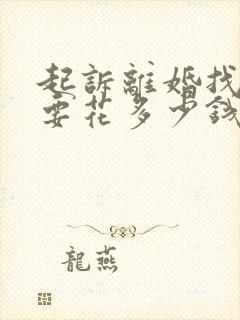 起訴離婚找
要花多少錢
龍燕